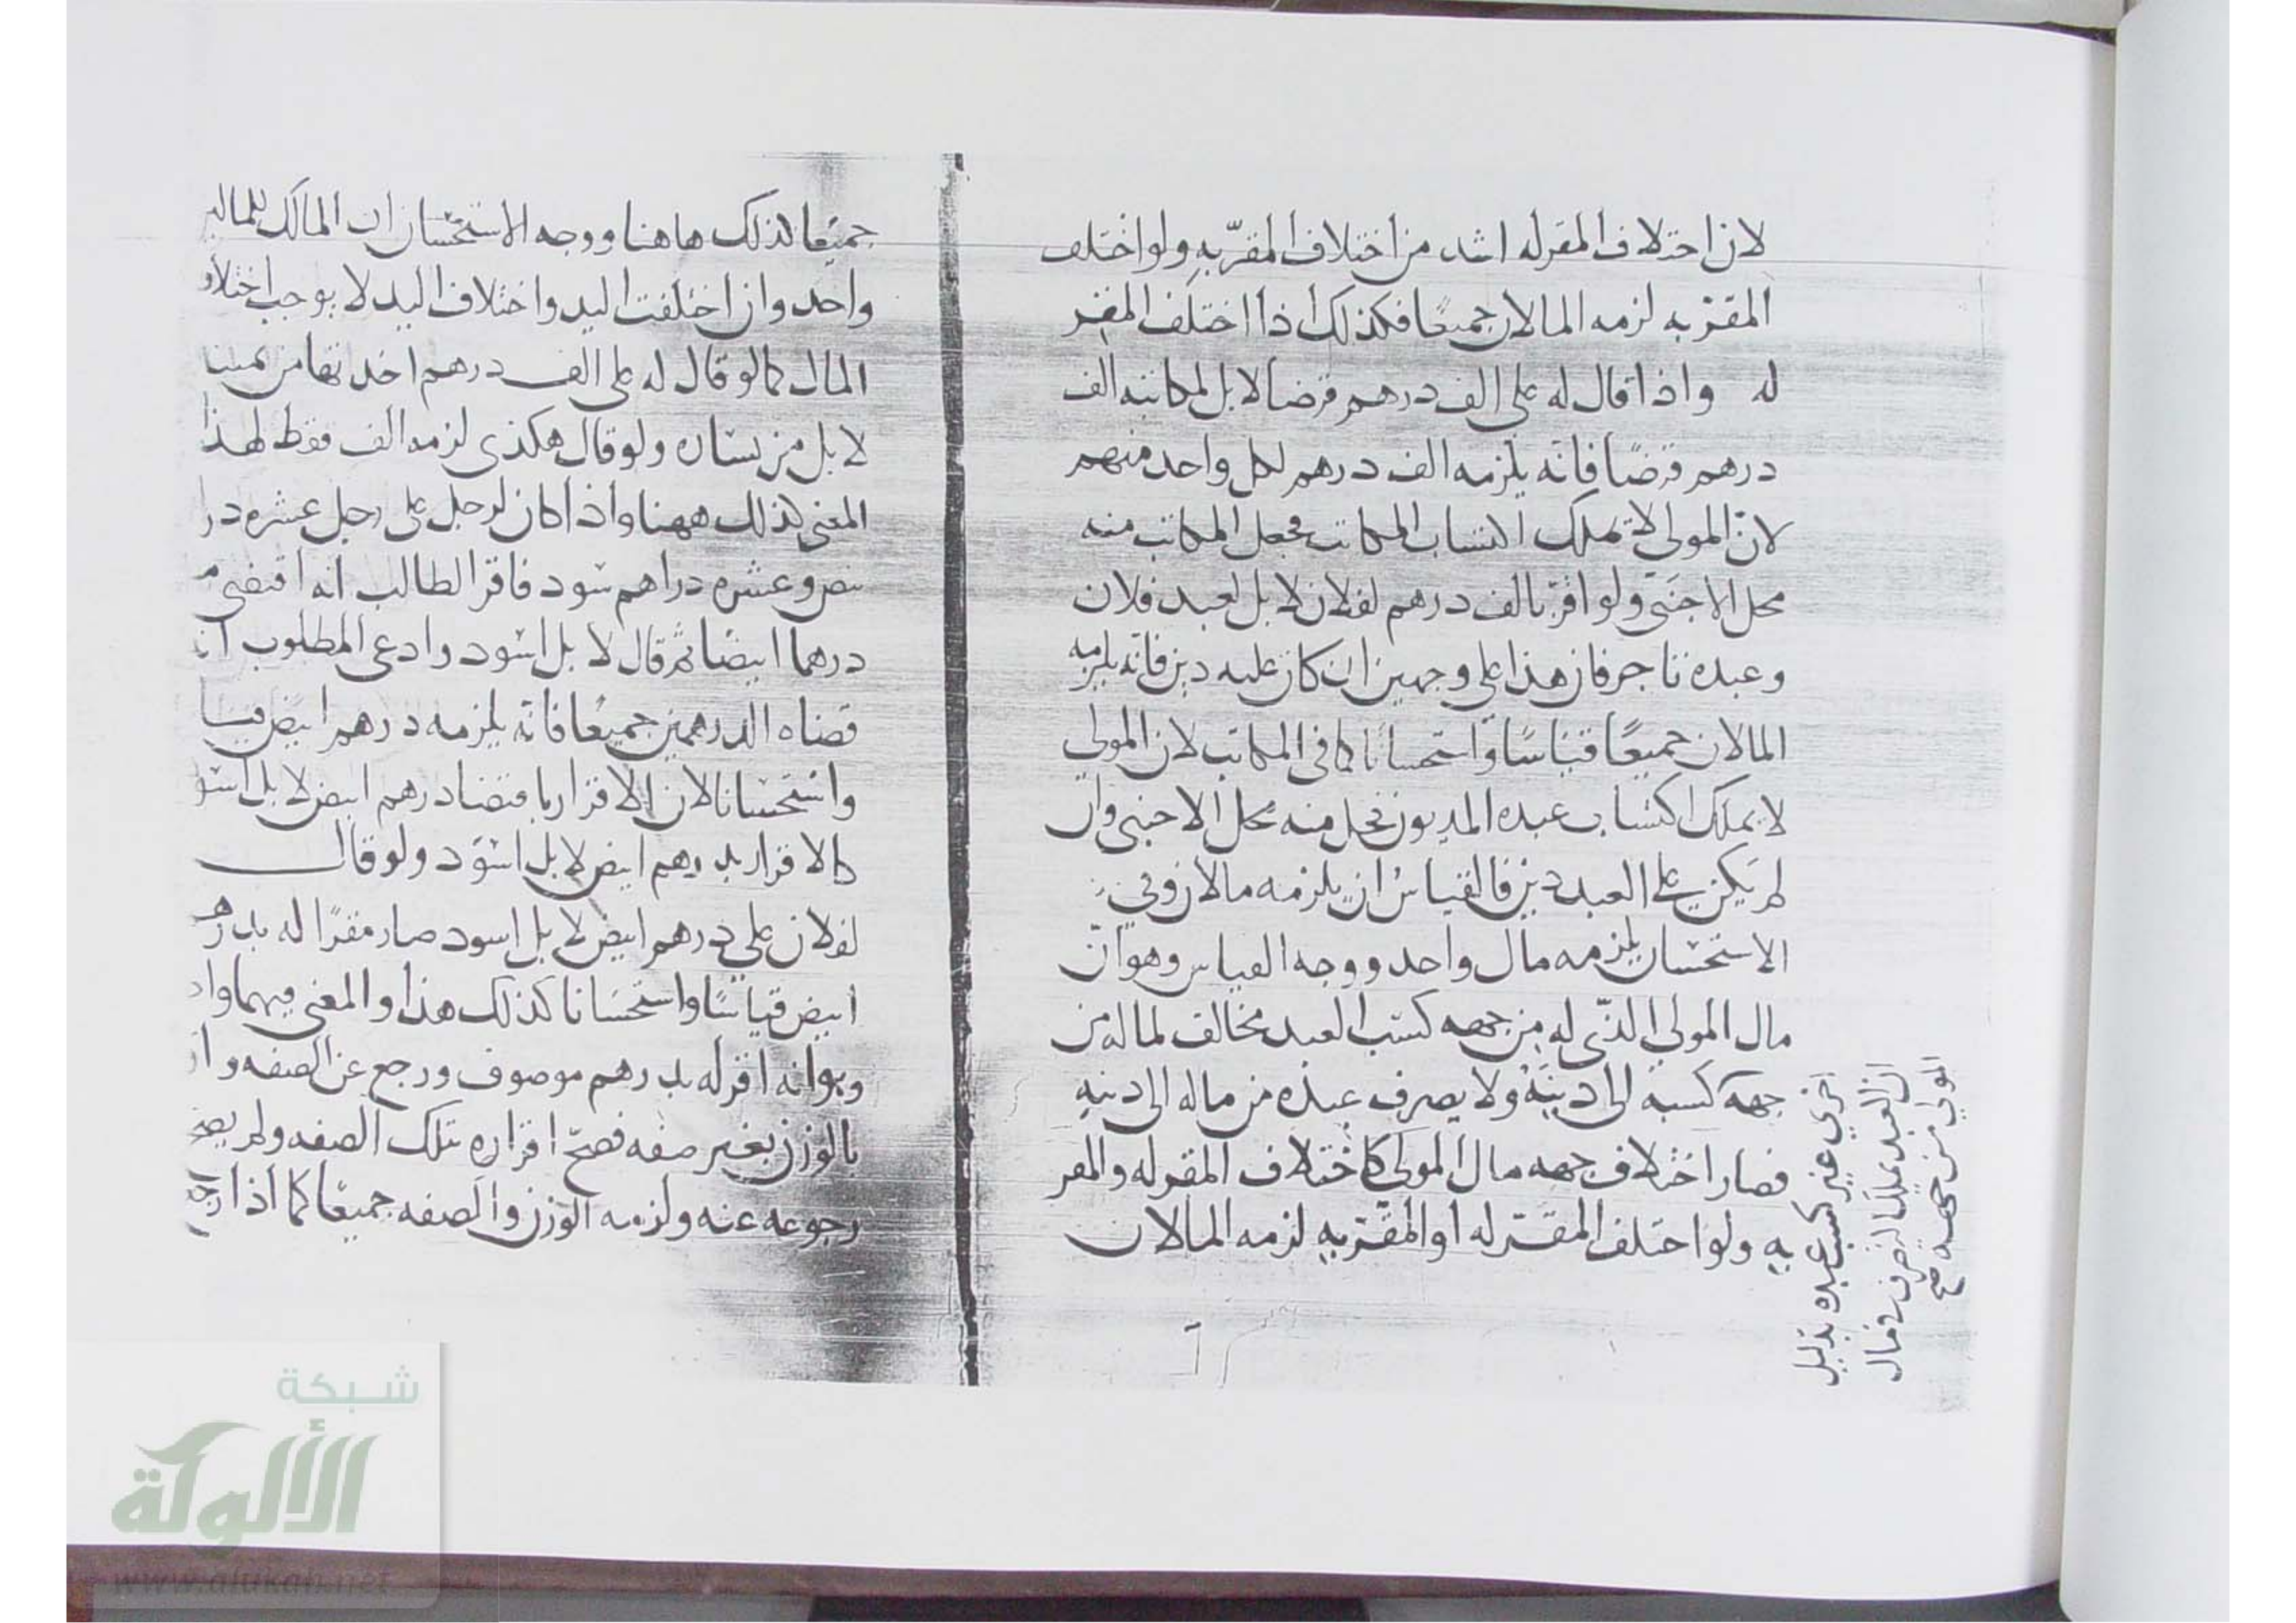 لان احتلاف المقر له اشد من اختلاف المقرّ به ولو اختلف
المقرّ به لزمه المالان جميعًا فكذلك اذا اختلف المقر
له واذا قال له على الف درهم قرضا لا بل لمكاتبه الف
درهم قرضًا فانه يلزمه الف درهم لكل واحد منهم
لانّ المولى لا يملك اكتساب المكاتب فجعل المكاتب منه
محل الاجنبي ولو اقرّ بالف درهم لفلان لا بل لعبد فلان
وعبده تاجر فان هذا على وجهين ان كان عليه دين فانه يلزمه
المالان جميعًا قياسًا واستحسانًا كما في المكاتب لان المولى
لا يملك اكتساب عبده المديون فحل منه محل الاجنبي وان
لم يكن على العبد دين فالقياس ان يلزمه مالان وفي
الاستحسان يلزمه مال واحد ووجه القياس وهو انّ
مال المولى الذّي له من جهه كسب العبد مخالف لما له من
جهه كسبه الى دينه ولا يصرف عبده من ماله الى دينه
فصار اختلاف جهه مال المولى كاختلاف المقر له والمقر
به ولو اختلف المقر له او المقرّ به لزمه المالان
اخري غير كسب عبده بدليل
ان العبد يملك التصرف في مال
المولى من جهه صح
جميعا كذلك هاهنا ووجه الاستحسان ان المالك للمال
واحد وان اختلفت اليد واختلاف اليد لا يوجب اختلاف
المال كما لو قال له على الف درهم اخدتها من يمينا
لا بل من يساره ولو قال هكذى لزمه الف فقط لهذا
المعنى كذلك ههنا واذا كان لرجل على رجل عشره درا
بيض وعشره دراهم سود فاقر الطالب انه اقتضى م
درهما ابيضا ثم قال لا بل اسود وادعى المطلوب انه
قضاه الدرهمين جميعًا فانه يلزمه درهم ابيض قياسا
واستحسانا لان الاقرار باقتضا درهم ابيض لا بل اسو
كالاقرار بدرهم ابيض لا بل اسود ولو قال
لفلان على درهم ابيض لا بل اسود صار مقرًا له بدرهم
ابيض قياسًا واستحسانا كذلك هذا والمعنى فيهما واحد
وهو انه اقر له بدرهم موصوف ورجع عن الصفه وا
بالوزن بغير صفه فصحّ اقراره بتلك الصفه ولم يصح
رجوعه عنه ولزمه الوزن والصفه جميعًا كما اذا رجع
شبكة
الألوكة
www.alukah.net